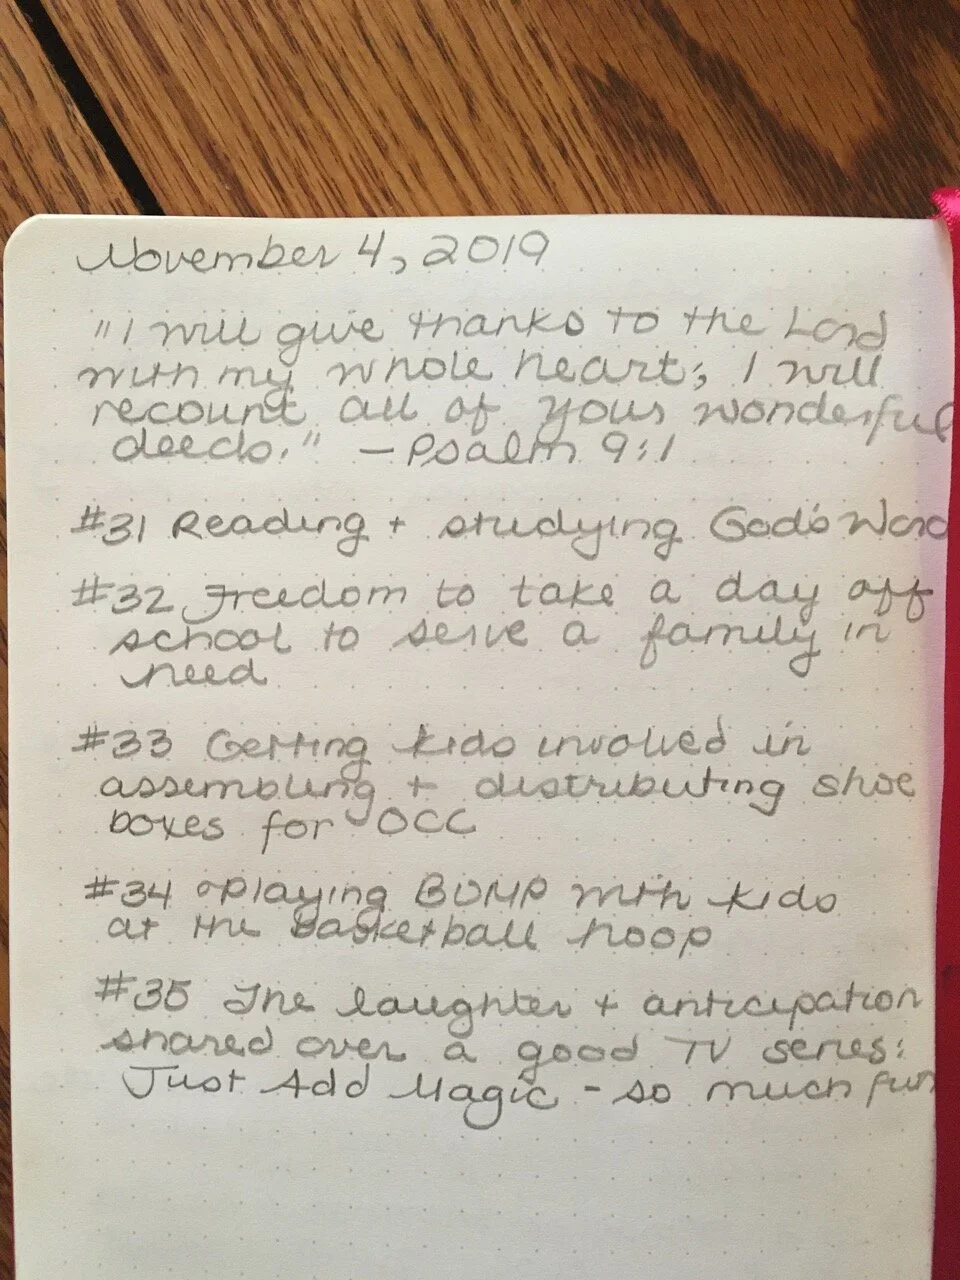 November 4, 2019
"I will give thanks to the Lord
with my whole heart; I will
recount all of your wonderful
deeds." - Psalm 9:1
#31 Reading + studying God's Word
#32 Freedom to take a day off
school to serve a family in
need
#33 Getting kids involved in
assembling + distributing shoe
boxes for OCC
#34 Playing BUMP with kids
at the basketball hoop
#35 The laughter + anticipation
shared over a good TV series:
Just Add Magic - so much fun